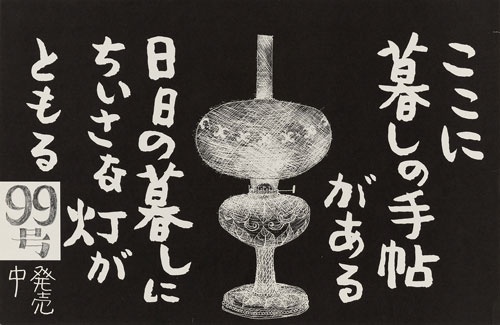 ここに
暮しの手帖
がある
日日の暮しに
ちいさな灯が
ともる
99
号
発売
中